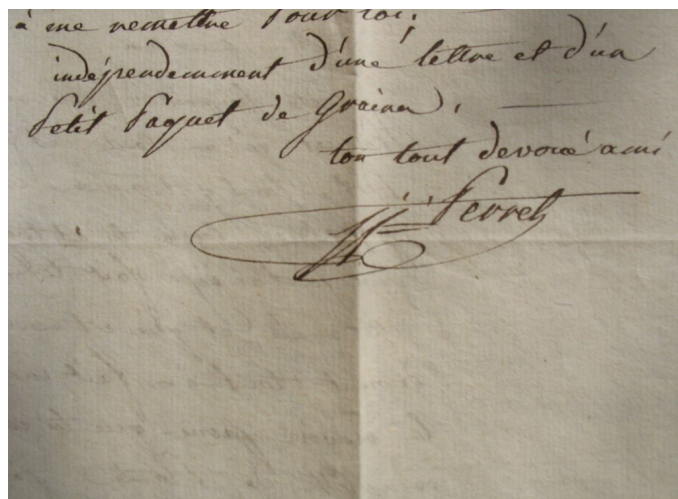 à me remettre pour toi.
indépendamment d'une lettre et d'un
Petit Paquet de Graines.
ton tout devoué ami
Perret